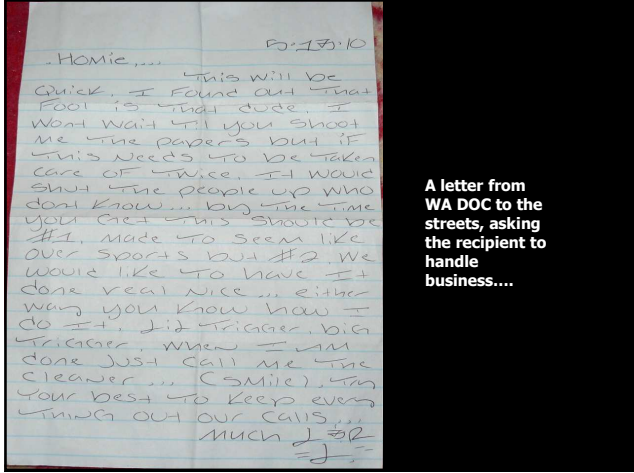 5·17·10
.Homie,...
This will be
Quick. I Found out That
Fool is That dude. I
Wont wait Til you shoot
me The papers but iF
This Needs To be Taken
care oF Twice. It would
shut The people up who
dont Know... by The Time
you Get This should be
#1. Made To Seem like
over sports but #2. We
would like To have It
done real Nice... either
way you Know how I
do It. Lil Tricner, big
Tricner, when I AM
done Just call me The
cleaner... (smile), Try
Your best To Keep every
Thing out our calls...
much L
A letter from
WA DOC to the
streets, asking
the recipient to
handle
business....